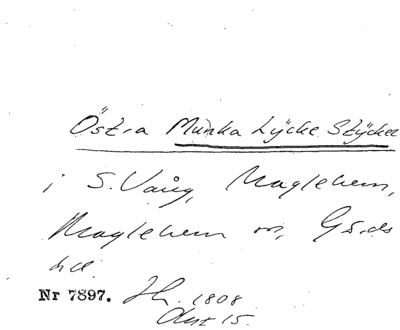 Östra Munka Lÿcke Stÿcken
i S. Vång, Maglehem,
Maglehem sn, Gärds
hd.
Nr 7897. Sk. 1808
Akt 15.